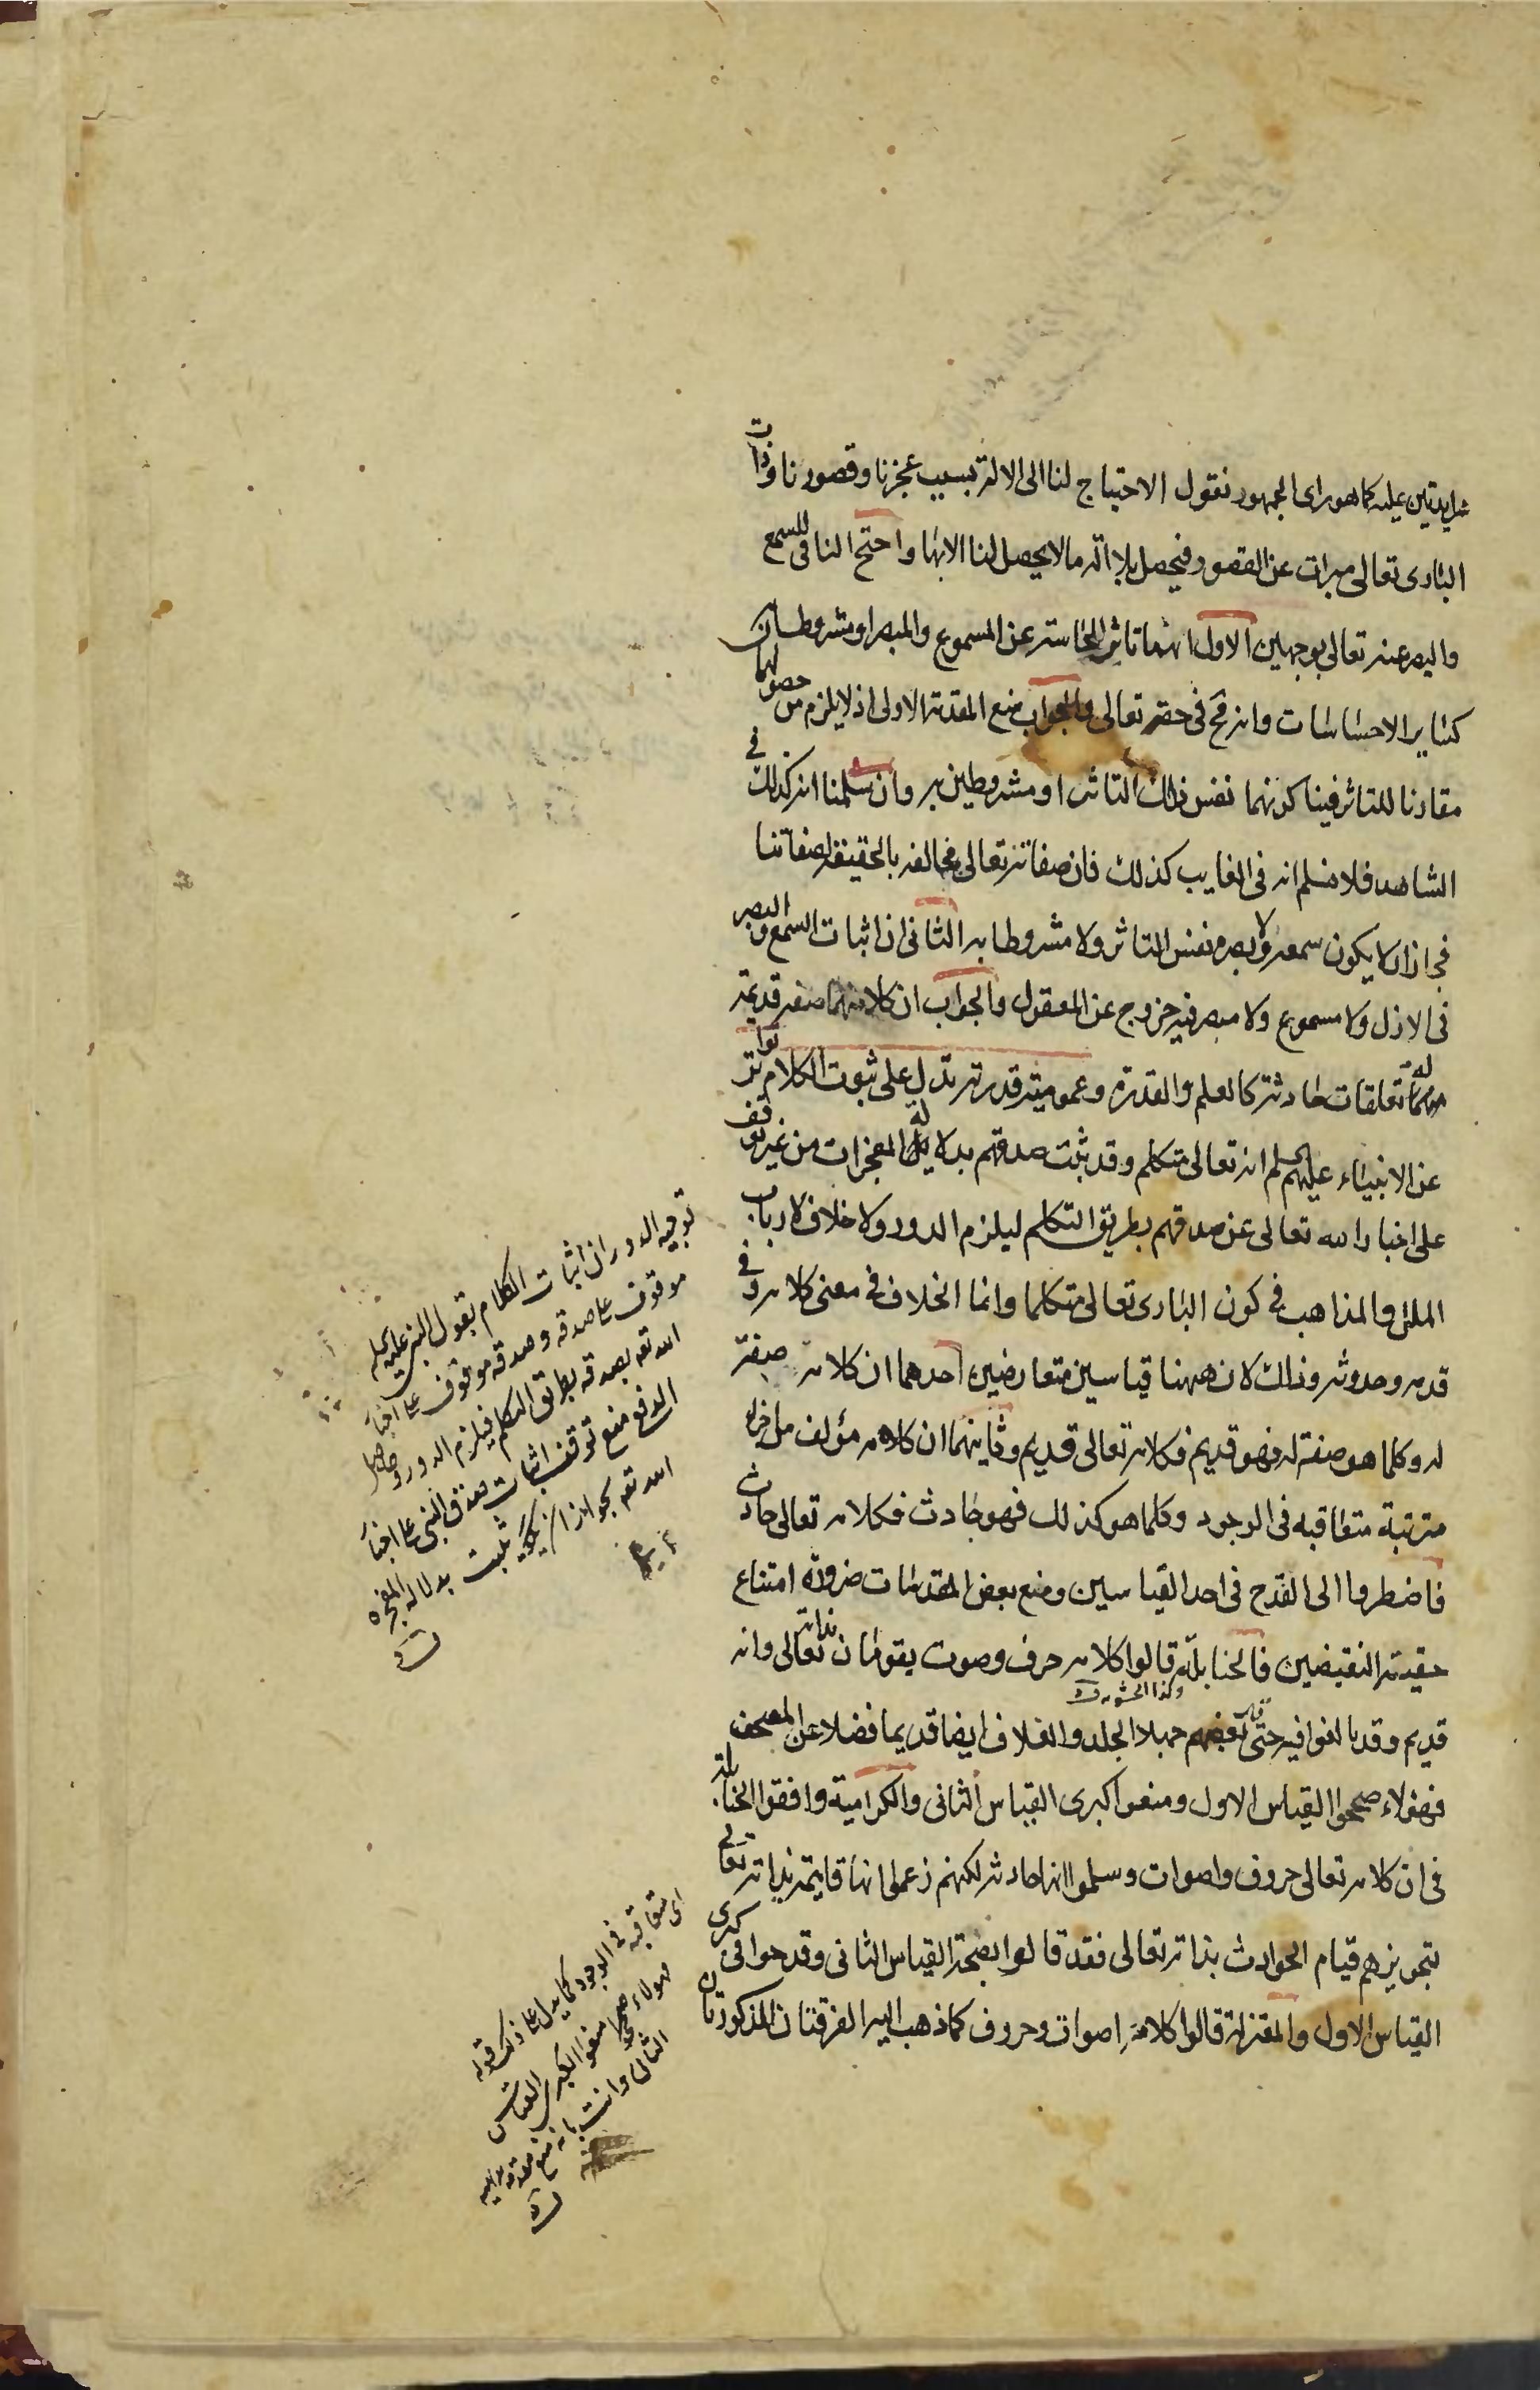 زايدتين عليه كما هو راى الجمهور نقول الاحتياج لنا الى الالة بسبب عجزنا وقصورنا وذات
البارى تعالى مبرات عن القصور فيحصل بلا الة ما لا يحصل لنا الا بها واحتج النافى للسمع
والبصر عنه تعالى بوجهين الاول انهما تاثر الحاسة عن المسموع والمبصر او مشروطان
كساير الاحساسات وانه مح فى حقه تعالى والجواب منع المقدمة الاولى اذ لا يلزم من حصولهما
مقارنا للتاثر فينا كونهما نفس ذلك التاثر او مشروطين به وان سلمنا انه كذلك فى
الشاهد فلا نسلم انه فى الغايب كذلك فان صفاته تعالى مخالفة بالحقيقة لصفاتنا
فجاز ان لا يكون سمعه ولا بصره نفس التاثر ولا مشروطا به الثانى ان اثبات السمع والبصر
فى الازل ولا مسموع ولا مبصر فيه خروج عن المعقول والجواب ان كلا منهما صفة قديمة
له تعلقات حادثة كالعلم والقدرة وعمومية قدرته تدل على ثبوت الكلام تواتر
عن الانبياء عليهم السلم انه تعالى متكلم وقد ثبت صدقهم بدلالة المعجزات من غير توقف
على اخبار الله تعالى عن صدقهم بطريق التكلم ليلزم الدور ولا خلاف لارباب
الملل والمذاهب فى كون البارى تعالى متكلما وانما الخلاف فى معنى كلامه وفى
قدمه وحدوثه وذلك لان ههنا قياسين متعارضين احدهما ان كلامه صفة
له وكلما هو صفة له فهو قديم فكلامه تعالى قديم وثاينهما ان كلامه مؤلف من اجزاء
مترتبة متعاقبة فى الوجود وكلما هو كذلك فهو حادث فكلامه تعالى حادث
فاضطروا الى القدح فى احد القياسين ومنع بعض المقدمات ضرورة امتناع
حقية النقيضين فالحنابلة قالوا كلامه حرف وصوت يقومان بذاته تعالى وانه
وكذا الحشوية
قديم وقد بالغوا فيه حتى قال بعضهم جهلا الجلد والغلاف ايضا قديما فضلا عن المصحف
فهؤلاء صححوا القياس الاول ومنعوا كبرى القياس الثانى والكرامية وافقوا الحنابلة
فى ان كلامه تعالى حروف واصوات وسلموا انها حادثة لكنهم زعموا انها قايمة بذاته تعالى
بتجويزهم قيام الحوادث بذاته تعالى فقد قالوا بصحة القياس الثانى وقدحوا فى كبرى
القياس الاول والمعتزلة قالوا كلامه اصوات وحروف كما ذهب اليه الفرقتان المذكورتان
توجيه الدور ان اثبات الكلام بقول النبى عليه السلم
موقوف على صدقه وصدقه موقوف على اخبار
الله تعه بصدقه بطريق التكلم فيلزم الدور وحاصل
الدفع منع توقف اثبات صدق النبى على اخبار
الله تعه بجواز ان يكون يثبت بدلالة المعجزة
اى متعاقبة فى الوجود كما يدل على ذلك قوله
فهولاء صححوا
منعوا الكبرى القياس
الثانى وانت